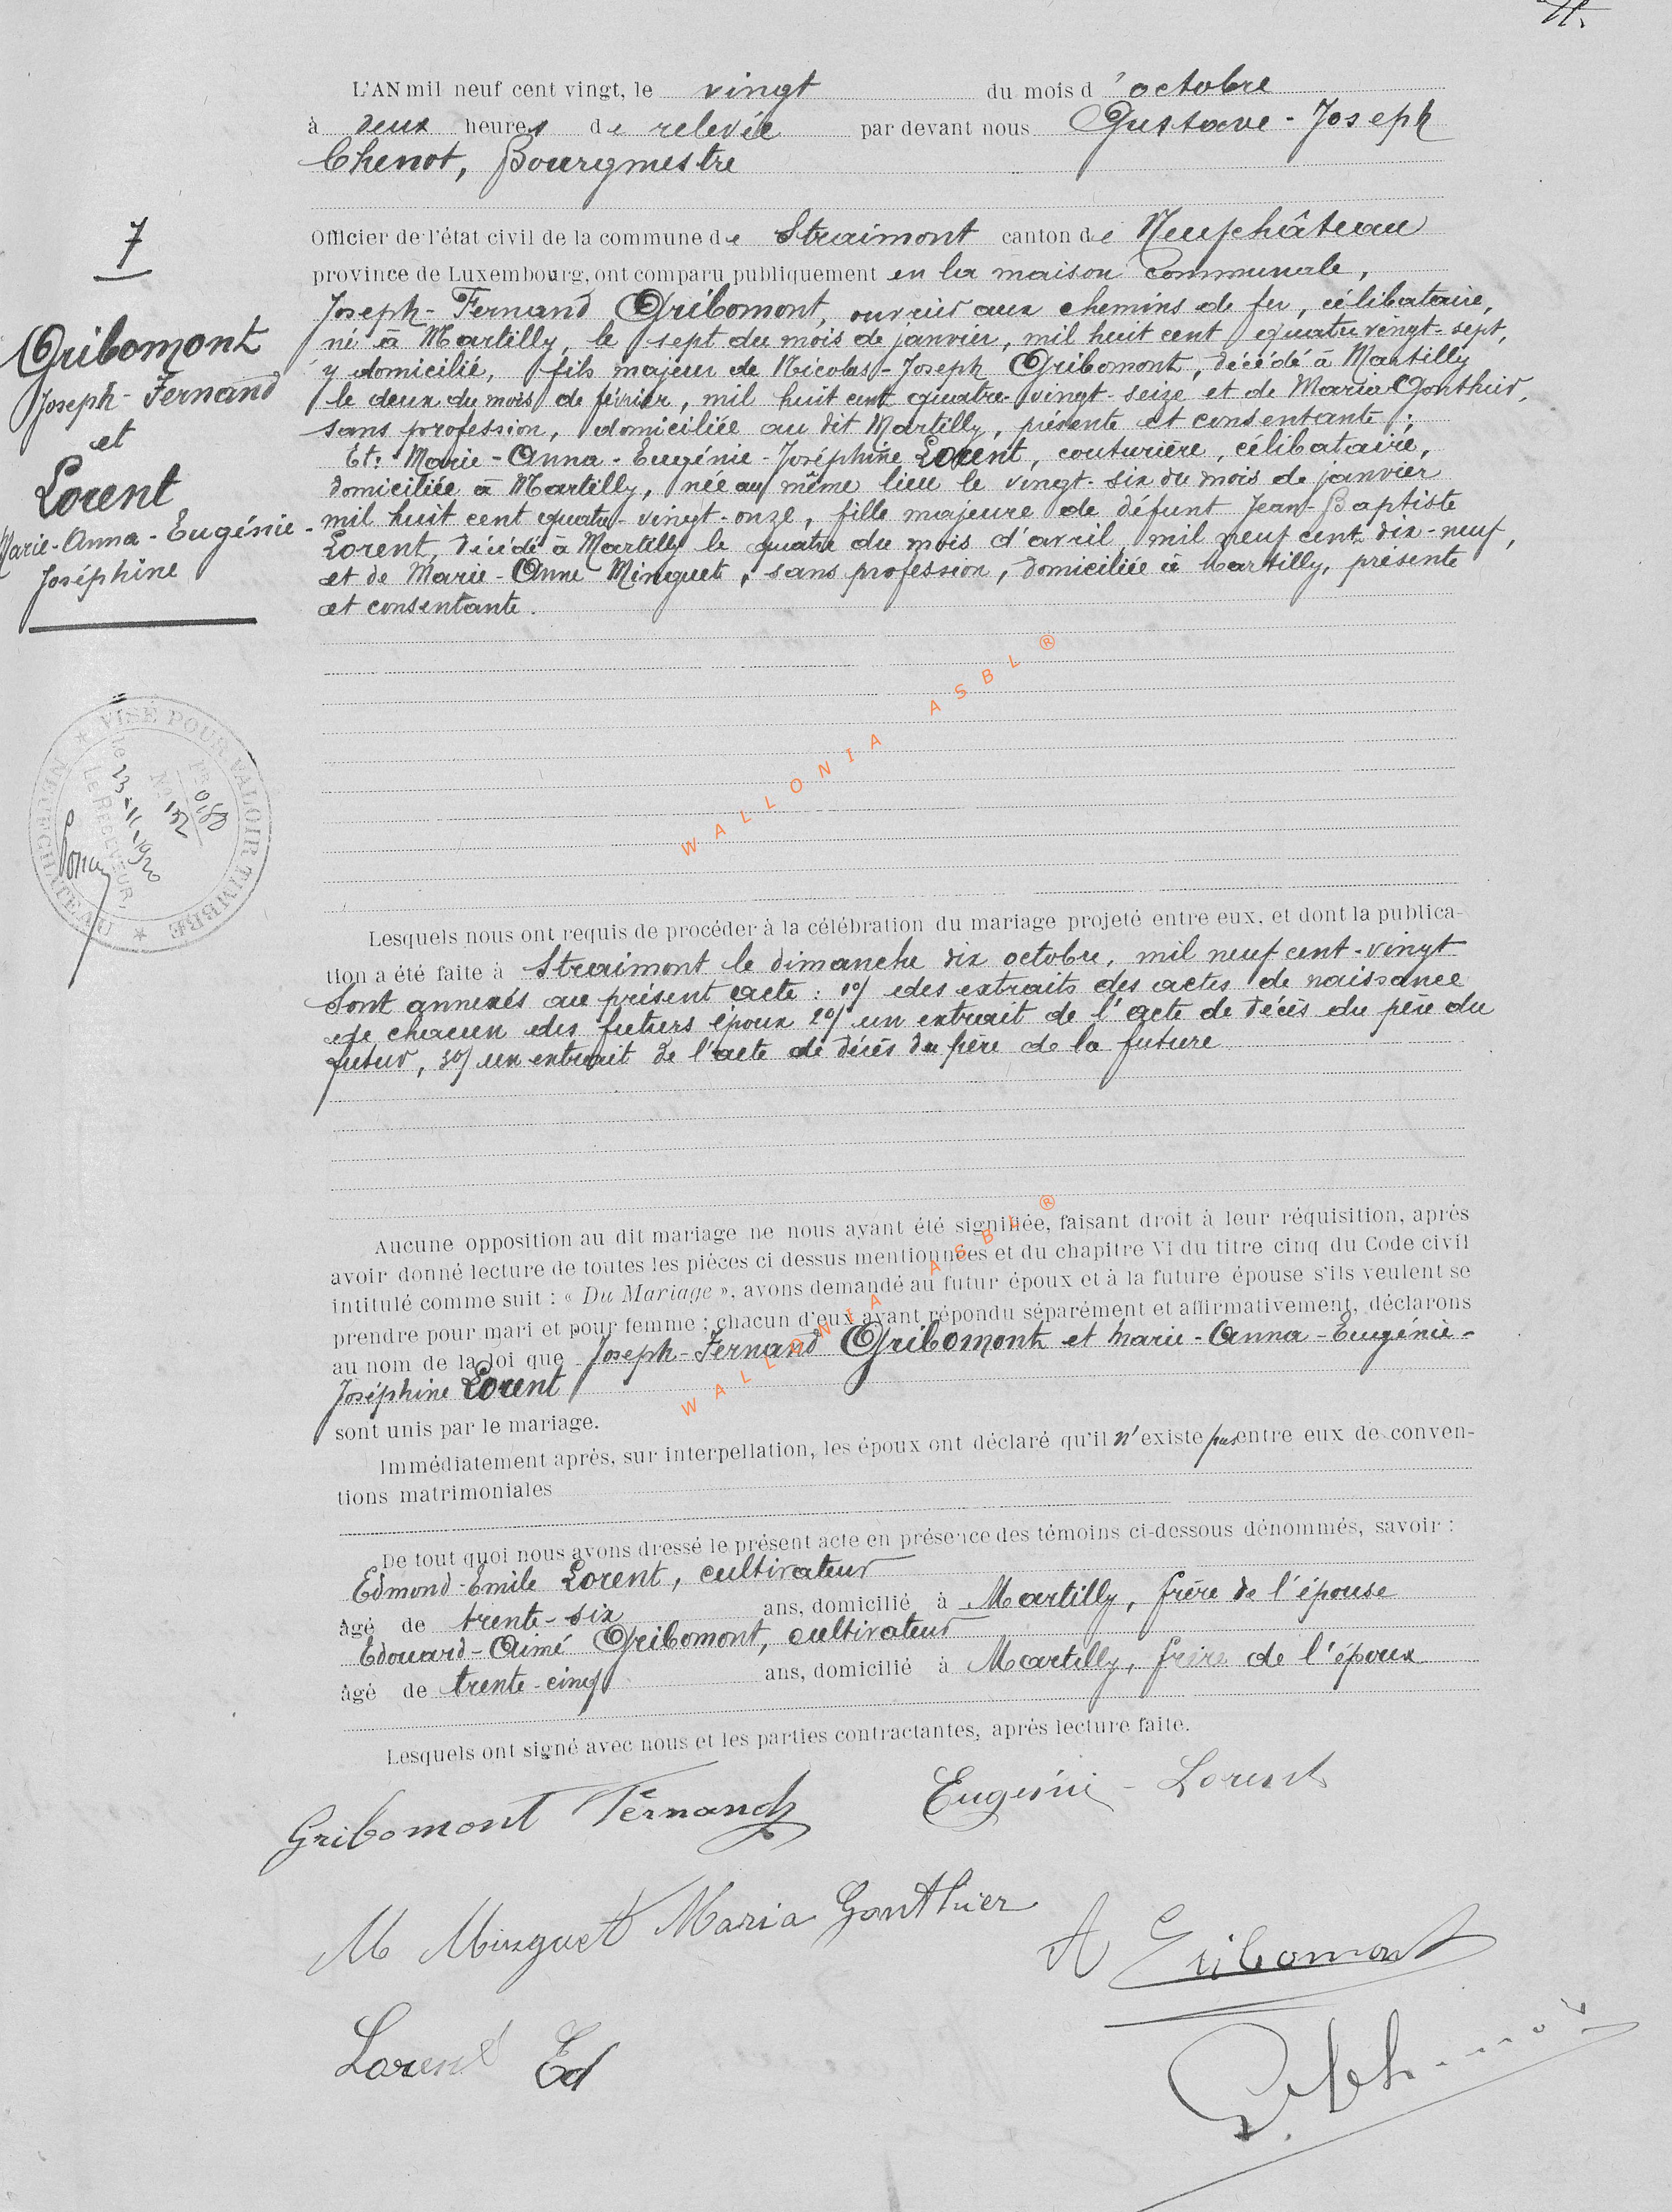 L'AN mil neuf cent vingt, le vingt du mois d'octobre
à deux heures de relevée par devant nous Gustave-Joseph
Chenot, Bourgmestre
Officier de l'état civil de la commune de Straimont canton de Neufchâteau
province de Luxembourg, ont comparu publiquement en la maison communale,
Joseph-Fernand Gribomont, ouvrier aux chemins de fer, célibataire,
né à Martilly, le sept du mois de janvier, mil huit cent quatre vingt-sept,
y domicilié, fils majeur de Nicolas-Joseph Gribomont, décédé à Martilly
le deux du mois de février, mil huit cent quatre-vingt-seize et de Maria Gonthier,
sans profession, domiciliée au dit Martilly, présente et consentante;
Et: Marie-Anna-Eugénie-Joséphine Lorent, couturière, célibataire,
domiciliée à Martilly, née au même lieu le vingt-six du mois de janvier
mil huit cent quatre-vingt-onze, fille majeure de défunt Jean-Baptiste
Lorent, décédé à Martilly le quatre du mois d'avril mil neuf cent dix-neuf,
et de Marie-Anne Minguet, sans profession, domiciliée à Martilly, présente
et consentante.
7
Gribomont
Joseph-Fernand
et
Lorent
Marie-Anna-Eugénie-
Joséphine
VISÉ POUR VALOIR TIMBRE
NEUFCHATEAU
No 132
Le 23-11-1920
LE RECEVEUR
WALLONIA ASBL ®
Lesquels nous ont requis de procéder à la célébration du mariage projeté entre eux, et dont la publica-
tion a été faite à Straimont le dimanche dix octobre, mil neuf cent-vingt
Sont annexés au présent acte: 1°/ des extraits des actes de naissance
de chacun des futurs époux 2°/ un extrait de l'acte de décès du père du
futur, 3°/ un extrait de l'acte de décès du père de la future
Aucune opposition au dit mariage ne nous ayant été signifiée, faisant droit à leur réquisition, après
avoir donné lecture de toutes les pièces ci dessus mentionnées et du chapitre VI du titre cinq du Code civil
intitulé comme suit : « Du Mariage », avons demandé au futur époux et à la future épouse s'ils veulent se
prendre pour mari et pour femme ; chacun d'eux ayant répondu séparément et affirmativement, déclarons
au nom de la loi que Joseph-Fernand Gribomont et Marie-Anna-Eugénie-
Joséphine Lorent
sont unis par le mariage.
WALLONIA ASBL ®
Immédiatement après, sur interpellation, les époux ont déclaré qu'il n'existe pas entre eux de conven-
tions matrimoniales
De tout quoi nous avons dressé le présent acte en présence des témoins ci-dessous dénommés, savoir :
Edmond-Emile Lorent, cultivateur
âgé de trente-six ans, domicilié à Martilly, frère de l'épouse
Edouard-Aimé Gribomont, cultivateur
âgé de trente-cinq ans, domicilié à Martilly, frère de l'époux
Lesquels ont signé avec nous et les parties contractantes, après lecture faite.
Gribomont Fernand Eugénie-Lorent
M Minguet Maria Gonthier A Gribomont
Lorent Ed